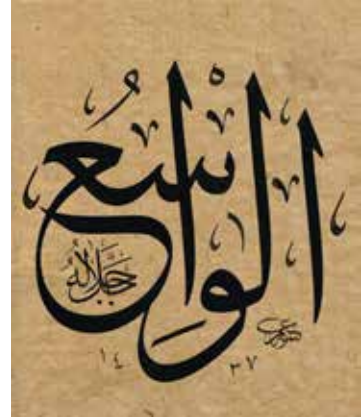 الواسعُ
جل جلاله
١٤٣٧